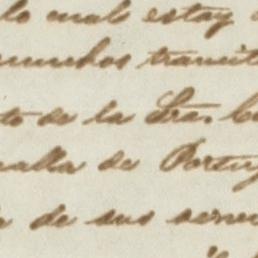 lo cual estoy
muchos transit
to de la Sra. C
alla de Portug
de sus servi